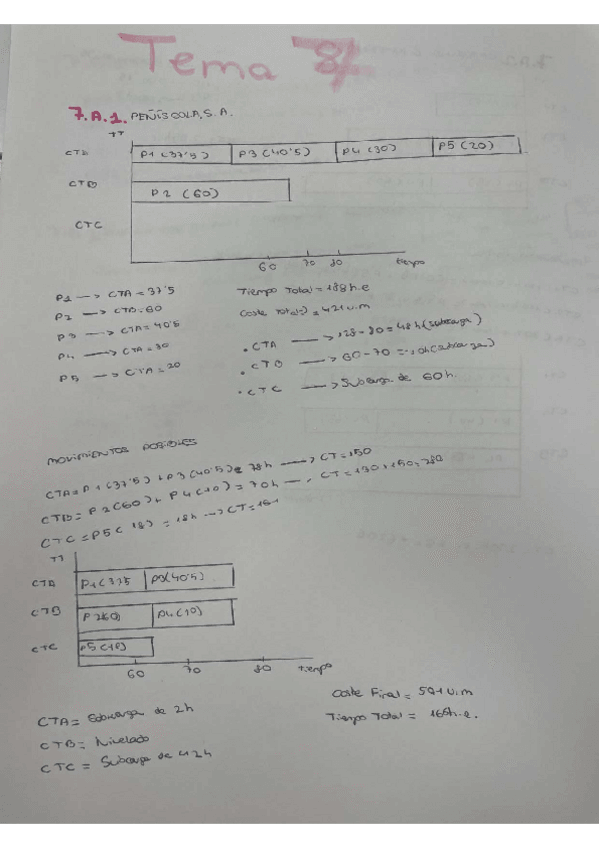 Tema 7
7.A.1. PEÑÍSCOLA, S.A.
TT
CTA P1 (37'5) P3 (40'5) P4 (30) P5 (20)
CTB P2 (60)
CTC
60 70 80 tiempo
P1 --> CTA = 37'5
P2 --> CTB = 60
P3 --> CTA = 40'5
P4 --> CTA = 30
P5 --> CTA = 20
Tiempo Total = 188 h.e
Coste Total = 421 u.m
• CTA --> 128-80 = 48h (sobrecarga)
• CTB --> 60-70 =
• CTC --> Subcarga de 60 h.
MOVIMIENTOS POSIBLES
CTA = P1 (37'5) + P3 (40'5) = 78h --> CT = 150
CTB = P2 (60) + P4 (10) = 70h --> CT = 130 + 150 = 280
CTC = P5 (18) = 18h --> CT = 161
TT
CTA P1 (37'5 P3 (40'5)
CTB P2 60) P4 (10)
CTC P5 (18)
60 70 80 tiempo
CTA = de 2h
CTB = Nivelado
CTC = Subcarga de 42h
Coste Final = 591 u.m
Tiempo Total = h.e.